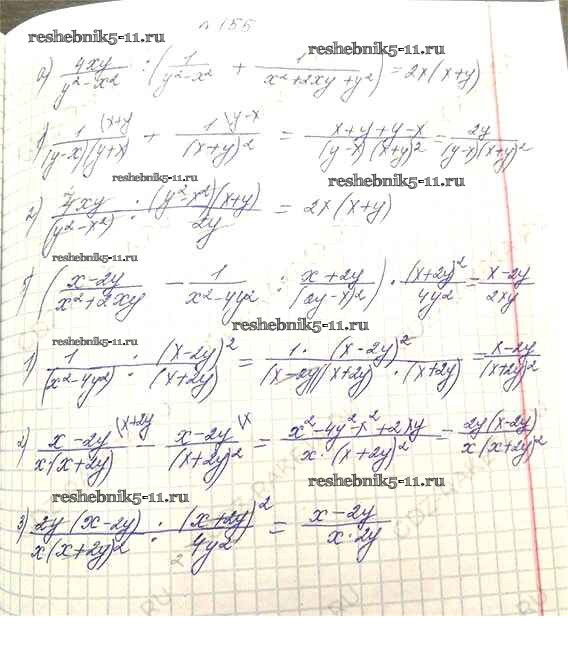 № 155
reshebnik5-11.ru reshebnik5-11.ru
а) 4xy/(y²-x²) : (1/(y²-x²) + 1/(x²+2xy+y²)) = 2x(x+y)
1) 1/((y-x)(y+x)) \(x+y + 1/(x+y)² \y-x = (x+y+y-x)/((y-x)(x+y)²) = 2y/((y-x)(x+y)²)
reshebnik5-11.ru reshebnik5-11.ru
2) 4xy/(y²-x²) · (y²-x²)(x+y)/2y = 2x(x+y)
reshebnik5-11.ru
б) ((x-2y)/(x²+2xy) - 1/(x²-4y²) : (x+2y)/(2y-x)²) · (x+2y)²/4y² = (x-2y)/2xy
reshebnik5-11.ru
1) 1/(x²-4y²) · (x-2y)²/(x+2y) = 1·(x-2y)²/((x-2y)(x+2y)·(x+2y)) = (x-2y)/(x+2y)²
2) (x-2y)/(x(x+2y)) \(x+2y - (x-2y)/(x+2y)² \x = (x²-4y²-x²+2xy)/(x·(x+2y)²) = 2y(x-2y)/(x(x+2y)²)
reshebnik5-11.ru reshebnik5-11.ru
3) 2y(x-2y)/(x(x+2y)²) · (x+2y)²/4y² = (x-2y)/(x·2y)